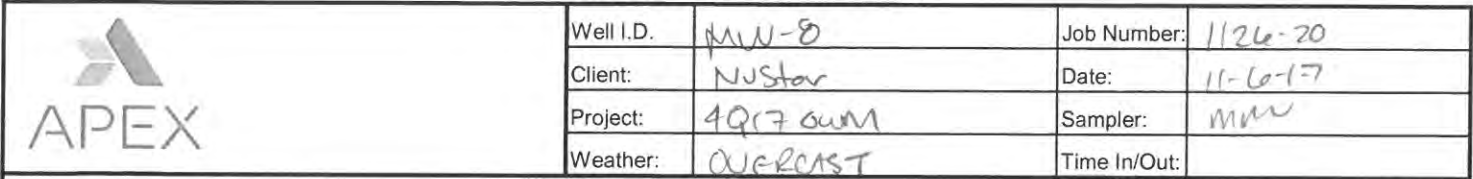 APEX
Well I.D. MW-8 Job Number: 1126-20
Client: NuStar Date: 11-6-17
Project: 4Q17 GWM Sampler: MMW
Weather: OVERCAST Time In/Out: